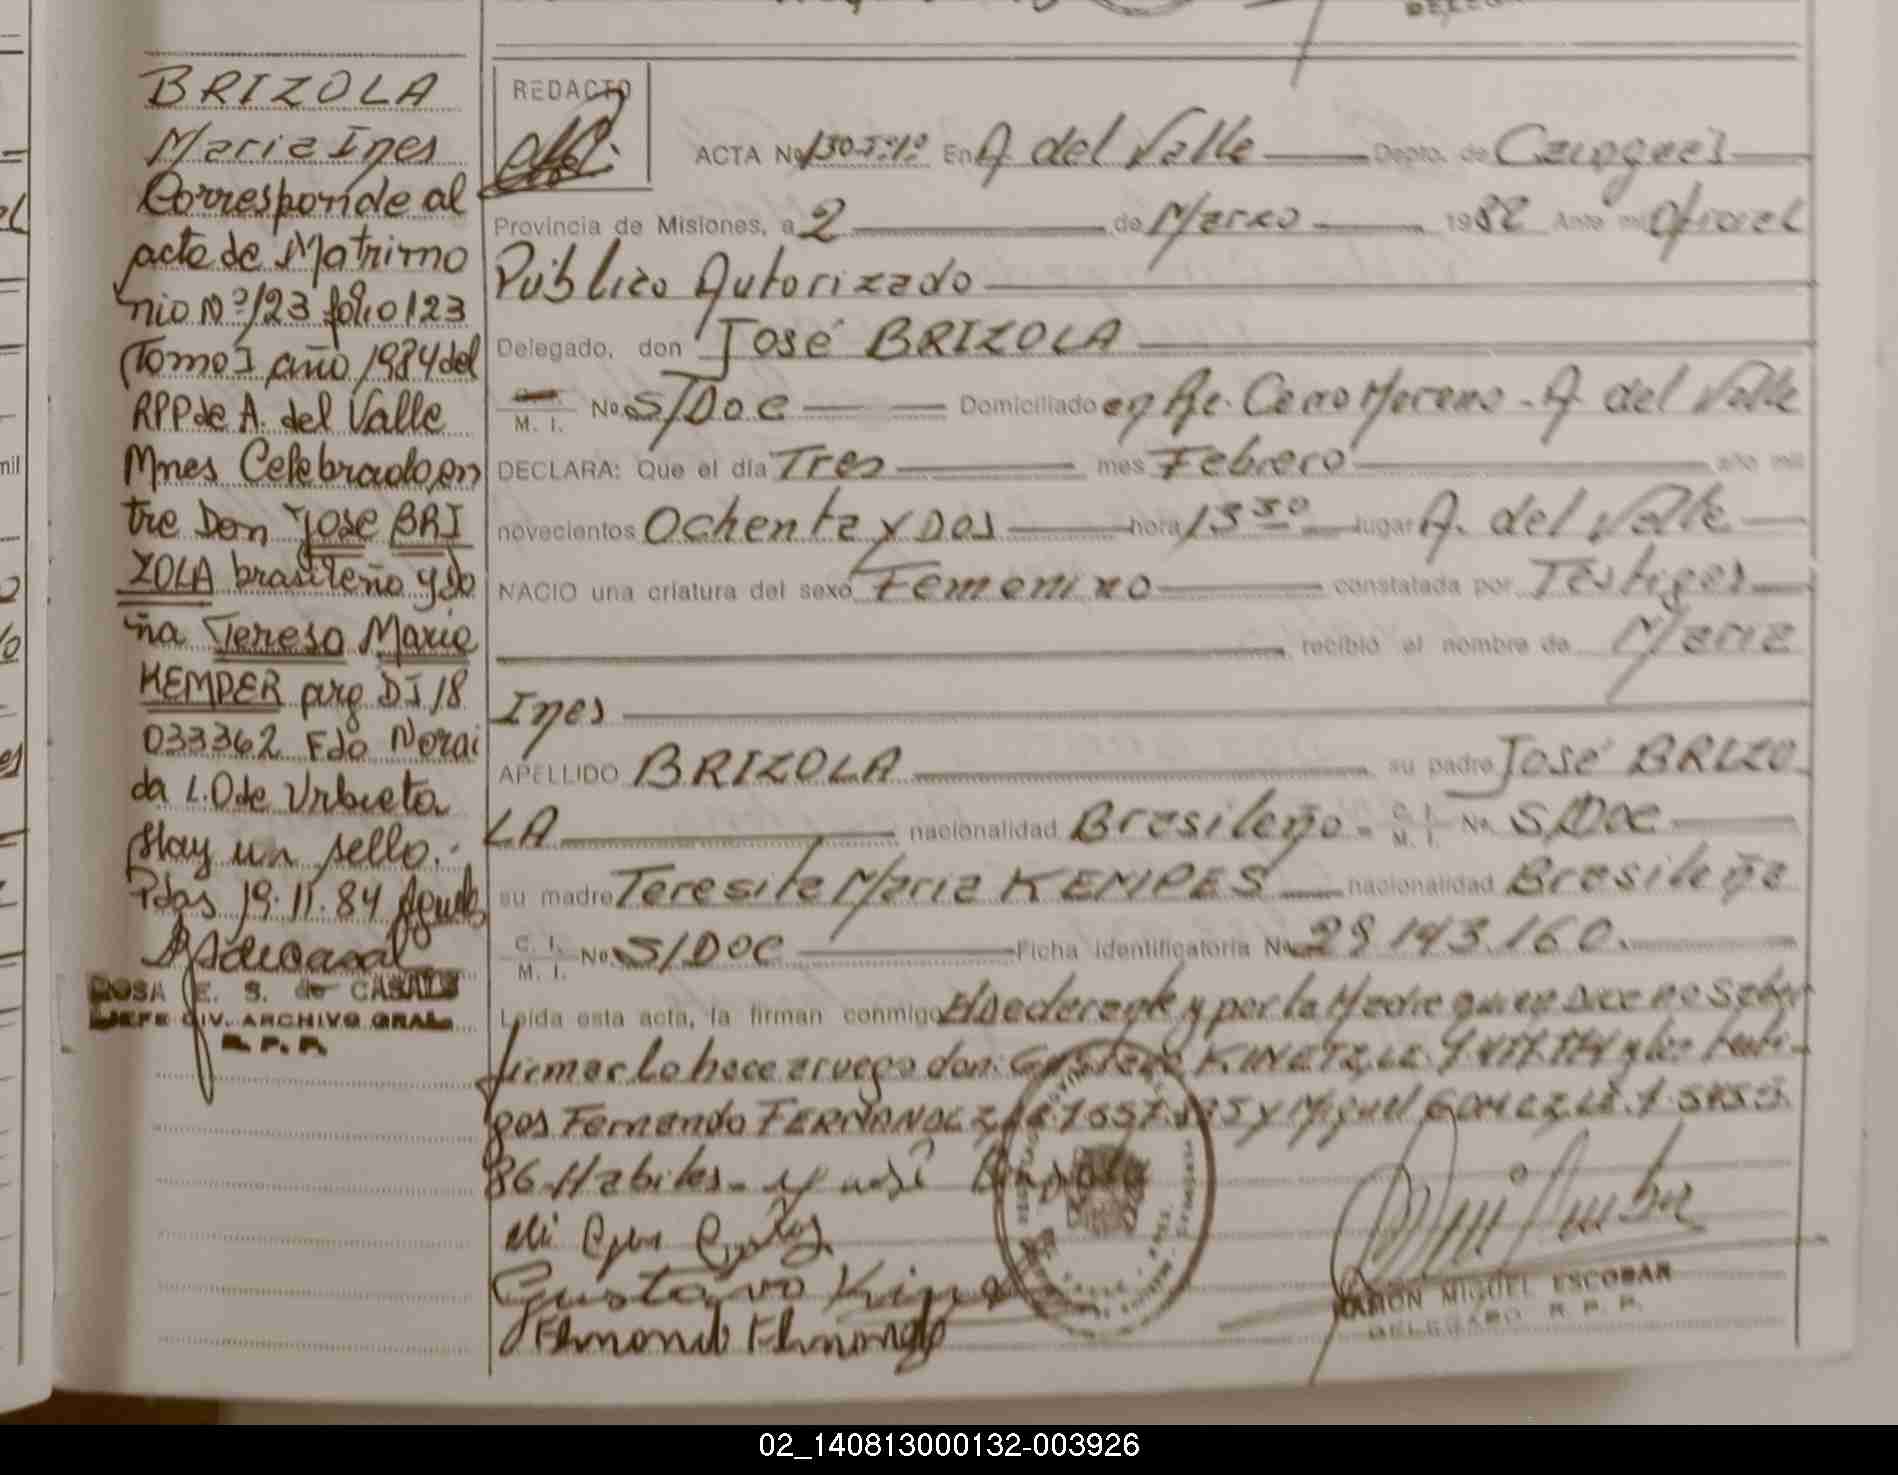 BRIZOLA
Maria Ines
Corresponde al
acta de Matrimo
nio Nº 123 folio 123
Tomo I año 1984 del
RPP de A. del Valle
Mnes Celebrado en
tre Don José BRI
ZOLA brasileño y do
ña Teresa Maria
KEMPER arg DI 18
033362 Fdo Norai
da L. O de Urbieta
Hay un sello.-
Pdas 19.11.84
ROSA E. S. de CASALS
JEFE DIV. ARCHIVO GRAL.
R. P. P.
REDACTO
ACTA Nº En A. del Valle Depto. de Cainguas
Provincia de Misiones, a 2 de Marzo 1982 Ante mi Oficial
Público Autorizado
Delegado, don José BRIZOLA
M. I. Nº S/Doc Domiciliado en Pje. Cerro Moreno - A. del Valle
DECLARA: Que el día Tres mes Febrero año mil
novecientos Ochenta y Dos hora 13 30 lugar A. del Valle
NACIO una criatura del sexo Femenino constatada por Testigos
recibió el nombre de Maria
Ines
APELLIDO BRIZOLA su padre José BRIZO
LA nacionalidad Brasileño - C. I. M. I. Nº S/Doc
su madre Teresita Maria KEMPES nacionalidad Brasileña
C. I. M. I. Nº S/Doc Ficha identificatoria Nº 29.143.160.
Leída esta acta, la firman conmigo El Declarante y por la Madre quien Dice no Saber
firmar lo hace a ruego don: Gustavo y los testi-
gos Fernando FERNANDEZ y Miguel GOMEZ
86-Habiles.-
Gustavo
RAMON MIGUEL ESCOBAR
DELEGADO R. P. P.
02_140813000132-003926